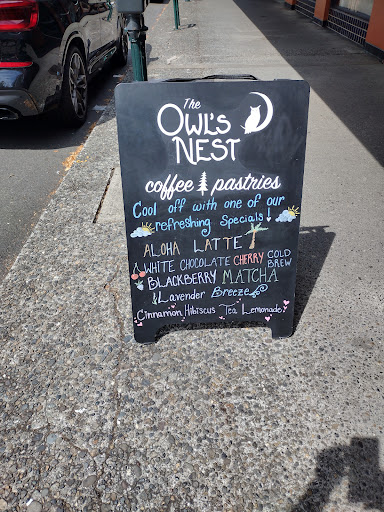 The
OWL'S
NEST
coffee pastries
Cool off with one of our
refreshing specials!
ALOHA LATTE
WHITE CHOCOLATE CHERRY COLD BREW
BLACKBERRY MATCHA
Lavender Breeze
Cinnamon Hibiscus Tea Lemonade